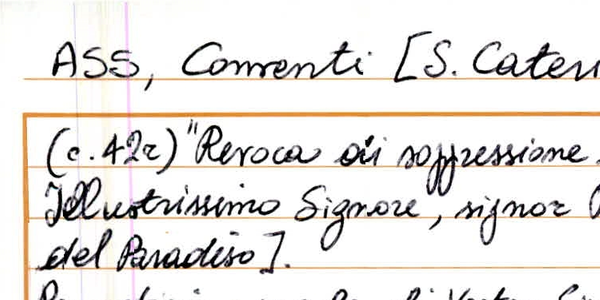 ASS, Conventi [S. Cater
(c. 42r) "Revoca di soppressione
Illustrissimo Signore, signor
del Paradiso].